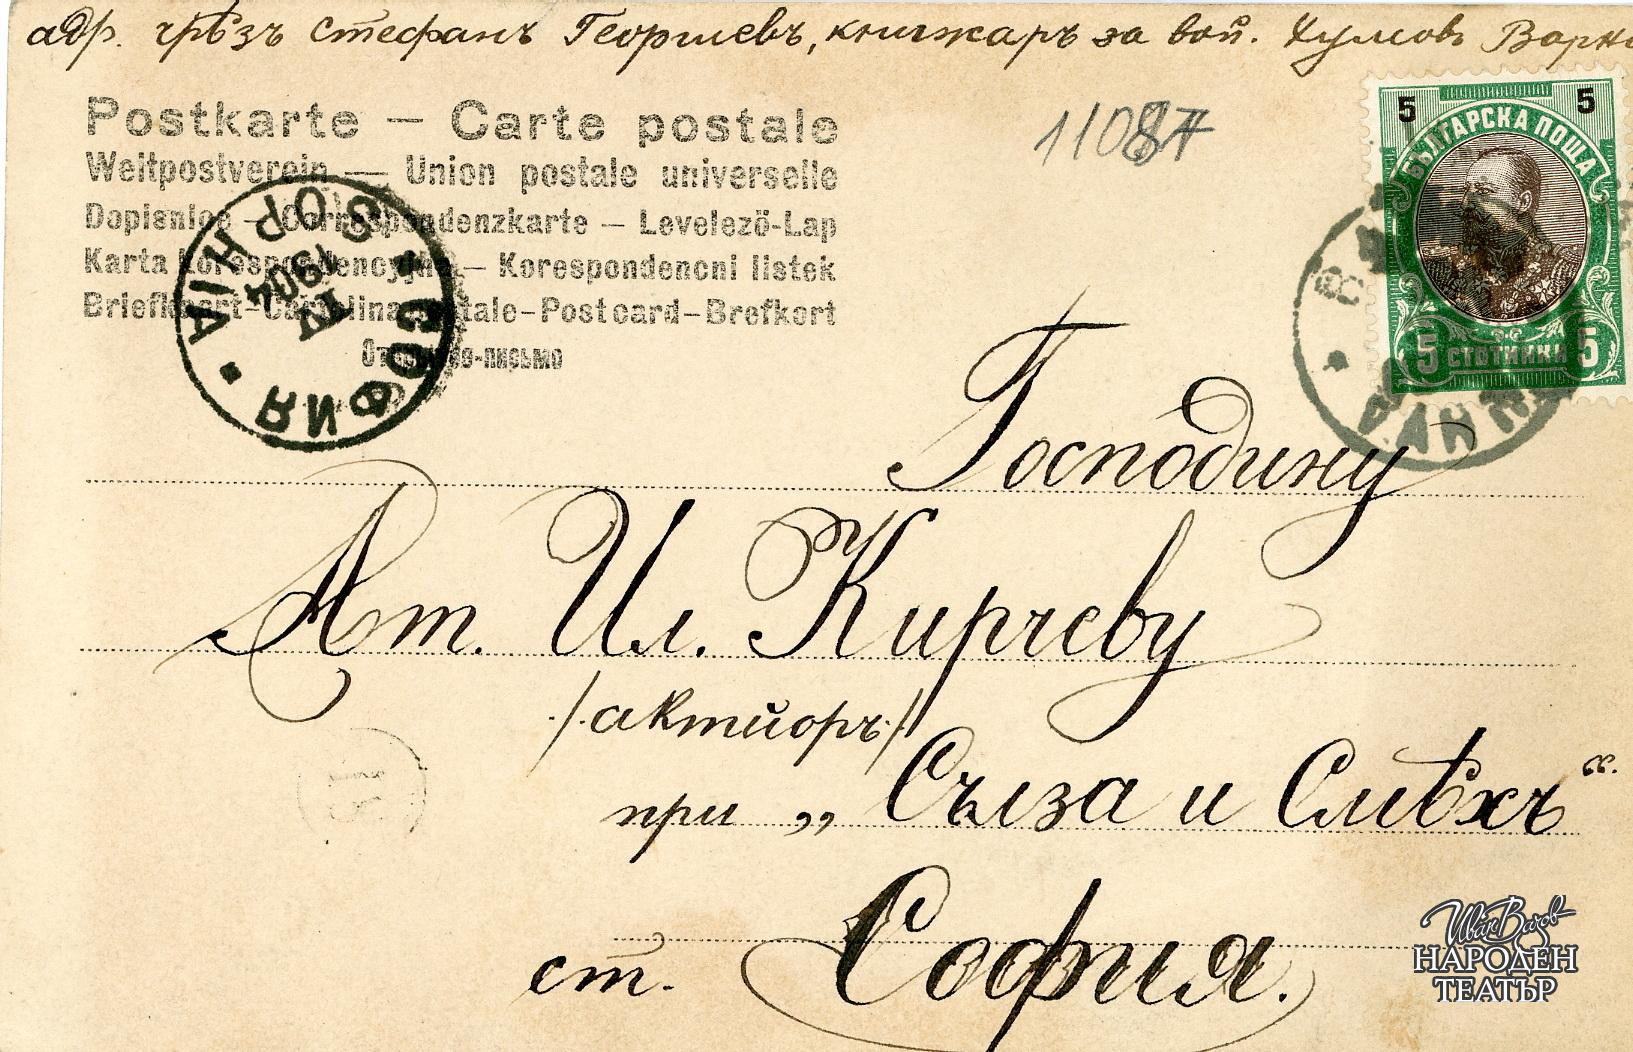 адр. чрѣзъ Стефанъ Георгиевъ, книжаръ за вой. Хумсовъ Варна
11087
5 5
БЪЛГАРСКА ПОЩА
Postkarte – Carte postale
Weltpostverein – Union postale universelle
Dopisnice – Correspondenzkarte – Levelező-Lap
Karta Korespondencyjna – Korespondencni listek
Briefkaart – Cartolina postale – Postcard – Brefkort
Открытое-письмо
5 СТОТИНКИ 5
СОФИЯ
SOPHIA
IV
1904
ВАРНА
Господину
Ат. Ил. Кирчеву
/актиоръ/
при „Сълза и Смѣхъ“.
ст. София.
Иван Вазов
НАРОДЕН
ТЕАТЪР